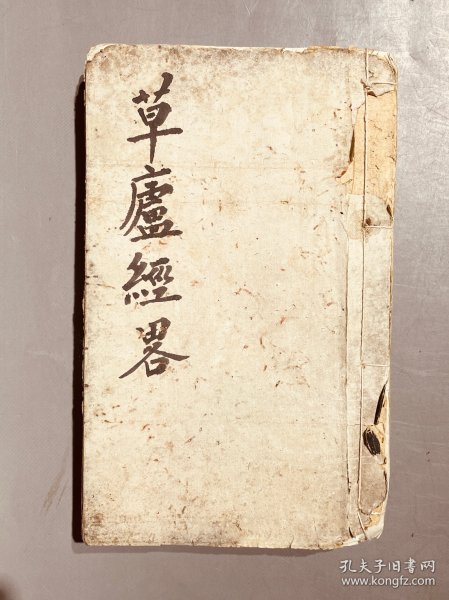 草廬經畧
孔夫子旧书网
www.kongfz.com